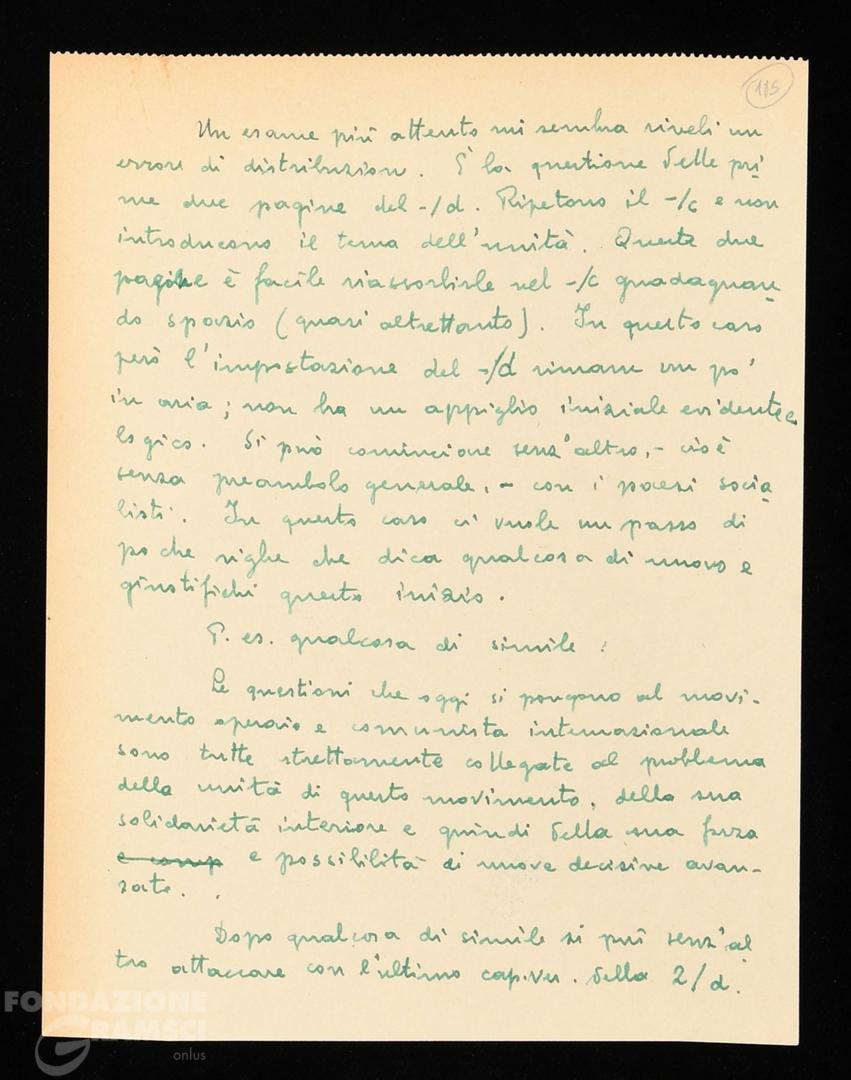 115
Un esame più attento mi sembra riveli un
errore di distribuzione. È la questione delle pri
me due pagine del -/d. Ripetono il -/c e non
introducono il tema dell'unità. Queste due
pagine è facile riassorbirle nel -/c guadagnan
do spazio (quasi altrettanto). In questo caso
però l'impostazione del -/d rimane un po'
in aria; non ha un appiglio iniziale evidente e
logico. Si può cominciare senz'altro, - cioè
senza preambolo generale, - con i paesi socia
listi. In questo caso ci vuole un passo di
poche righe che dica qualcosa di nuovo e
giustifichi questo inizio.
P. es. qualcosa di simile:
Le questioni che oggi si pongono al movi-
mento operaio e comunista internazionale
sono tutte strettamente collegate al problema
della unità di questo movimento, della sua
solidarietà interiore e quindi della sua forza
e comp e possibilità di nuove decisive avan-
zate.
Dopo qualcosa di simile si può senz'al
tro attaccare con l'ultimo capiver. della 2/d.
FONDAZIONE
GRAMSCI
onlus